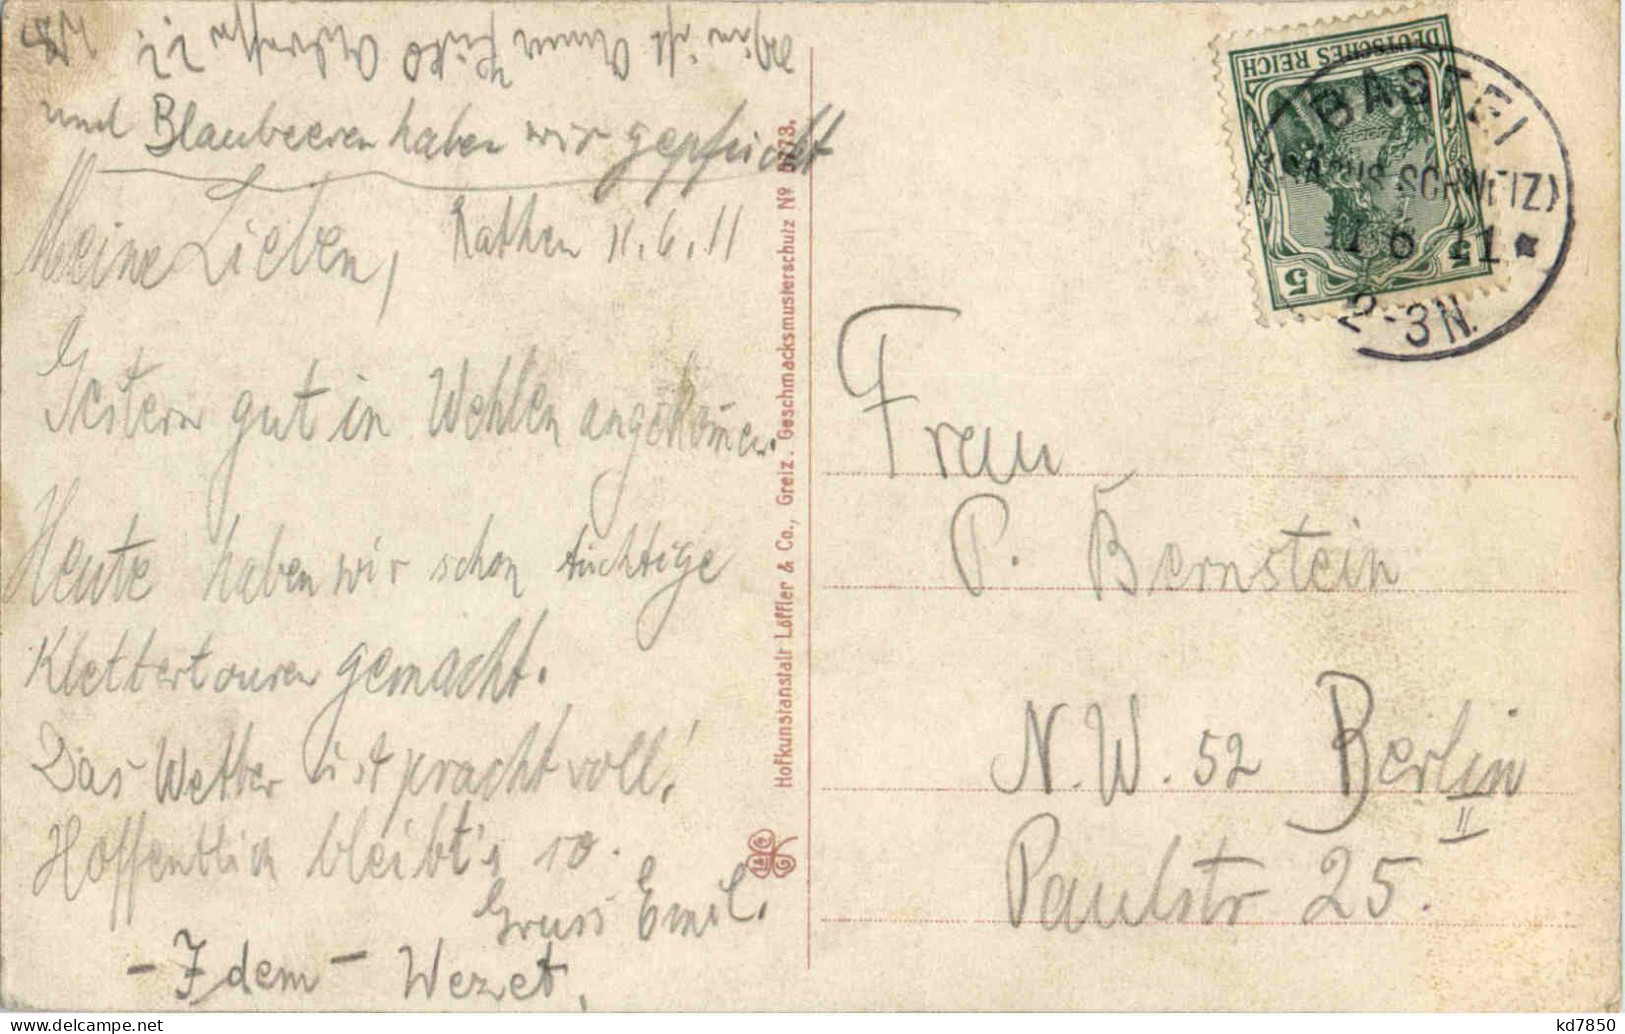 und Blaubeeren haben wir gepflückt
Rathen 11.6.11
Meine Lieben,
Gestern gut in Wehlen angekommen.
Heute haben wir schon tüchtige
Klettertouren gemacht.
Das Wetter ist prachtvoll!
Hoffentlich bleibt's so.
Gruss Emil.
- Idem - Wezet.
Hofkunstanstalt Löffler & Co., Greiz. Geschmacksmusterschutz Nº 5773.
DEUTSCHES REICH
5 5
BASTEI
(SÄCHS. SCHWEIZ)
11 6 11 *
2-3N.
Frau
P. Bernstein
N.W. 52 Berlin
II
Paulstr 25.
kd7850